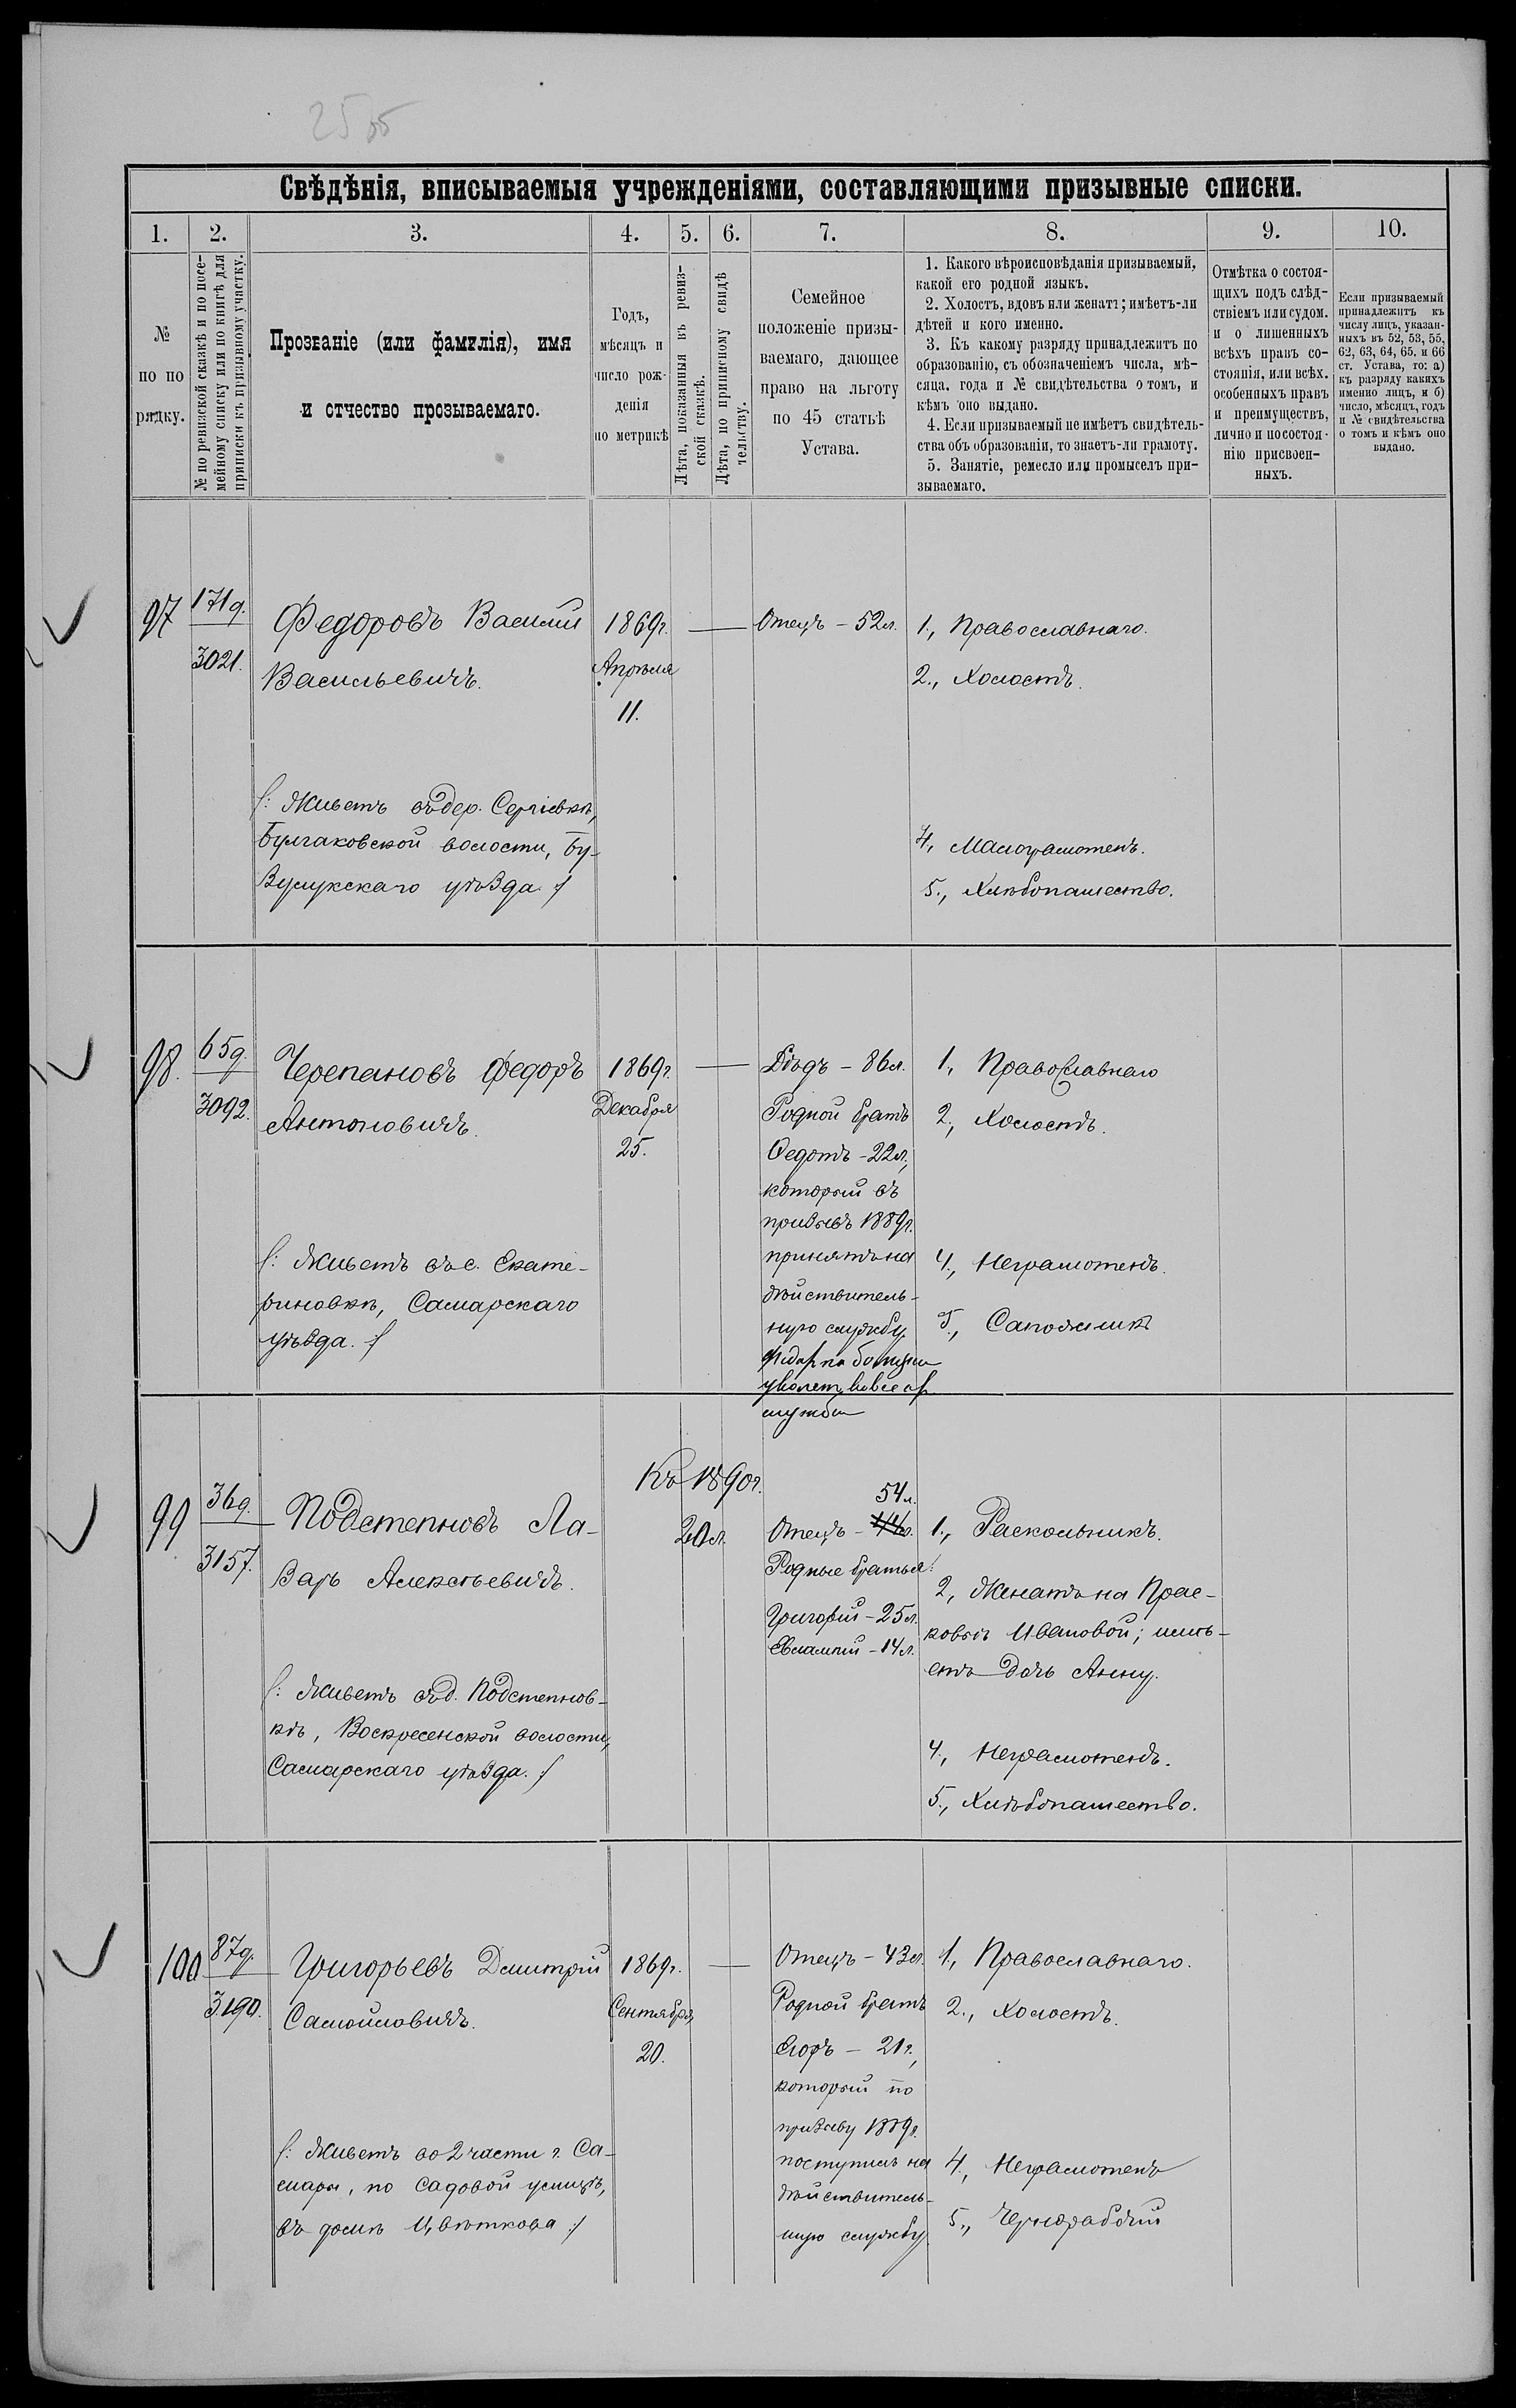 25об
Свѣдѣнія, вписываемыя учрежденіями, составляющими призывные списки.
1. 2. 3. 4. 5. 6. 7. 8. 9. 10.
№
по по
рядку.
№ по ревизской сказкѣ и по посе-
мейному списку или по книгѣ для
приписки къ призывному участку.
Прозваніе (или фамилія), имя
и отчество прозываемаго.
Годъ,
мѣсяцъ и
число рож-
денія
по метрикѣ
Лѣта, показанныя въ ревиз-
ской сказкѣ.
Лѣта, по приписному свидѣ
тельству.
Семейное
положеніе призы-
ваемаго, дающее
право на льготу
по 45 статьѣ
Устава.
1. Какого вѣроисповѣданія призываемый,
какой его родной языкъ.
2. Холостъ, вдовъ или женатъ; имѣетъ-ли
дѣтей и кого именно.
3. Къ какому разряду принадлежитъ по
образованію, съ обозначеніемъ числа, мѣ-
сяца, года и № свидѣтельства о томъ, и
кѣмъ оно выдано.
4. Если призываемый не имѣетъ свидѣтель-
ства объ образованіи, то знаетъ-ли грамоту.
5. Занятіе, ремесло или промыселъ при-
зываемаго.
Отмѣтка о состоя-
щихъ подъ слѣд-
ствіемъ или судомъ.
и о лишенныхъ
всѣхъ правъ со-
стоянія, или всѣхъ.
особенныхъ правъ
и преимуществъ,
лично и по состоя-
нію присвоен-
ныхъ.
Если призываемый
принадлежитъ къ
числу лицъ, указан-
ныхъ въ 52, 53, 55,
62, 63, 64, 65. и 66
ст. Устава, то: а)
къ разряду какихъ
именно лицъ, и б)
число, мѣсяцъ, годъ
и № свидѣтельства
о томъ и кѣмъ оно
выдано.
97
171д.
3021.
Федоровъ Василій
Васильевичъ.
/: Живетъ въ дер. Сергіевкѣ,
Булгаковской волости, Бу-
зулукскаго уѣзда. :/
1869г.
Апрѣля
11.
Отецъ - 52л.
1., Православнаго.
2., Холостъ.
4, Малограмотенъ.
5., Хлѣбопашество.
98.
65д.
3092.
Черепановъ Федоръ
Антоновичъ.
/: Живетъ въ с. Екате-
риновкѣ, Самарскаго
уѣзда. :/
1869г.
Декабря
25.
Дѣдъ - 86л.
Родной братъ
Федотъ - 22л.,
который въ
призывъ 1889г.
принятъ на
дѣйствитель-
ную службу.
службы
1., Православнаго
2., Холостъ.
4., Неграмотенъ.
5., Сапожникъ
99
36д.
3157.
Подстепновъ Ла-
зарь Алексѣевичъ.
/: Живетъ въ д. Подстепнов-
кѣ, Воскресенской волости,
Самарскаго уѣзда. :/
Къ 1890г.
20л.
54л.
Отецъ - 44л.
Родные братья:
Григорій - 25л.
Евлампій - 14л.
1., Раскольникъ.
2, Женатъ на Прас-
ковьѣ Ивановой; имѣ-
етъ дочь Анну.
4., Неграмотенъ.
5., Хлѣбопашество.
100
87д.
3190.
Григорьевъ Дмитрій
Самойловичъ.
/: Живетъ во 2 части г. Са-
мары, по Садовой улицѣ,
въ домѣ Цвѣткова :/
1869г.
Сентября
20.
Отецъ - 43л.
Родной братъ
Егоръ - 21г.,
который по
призыву 1889г.
поступилъ на
дѣйствитель-
ную службу.
1., Православнаго.
2., Холостъ.
4., Неграмотенъ
5., Чернорабочій